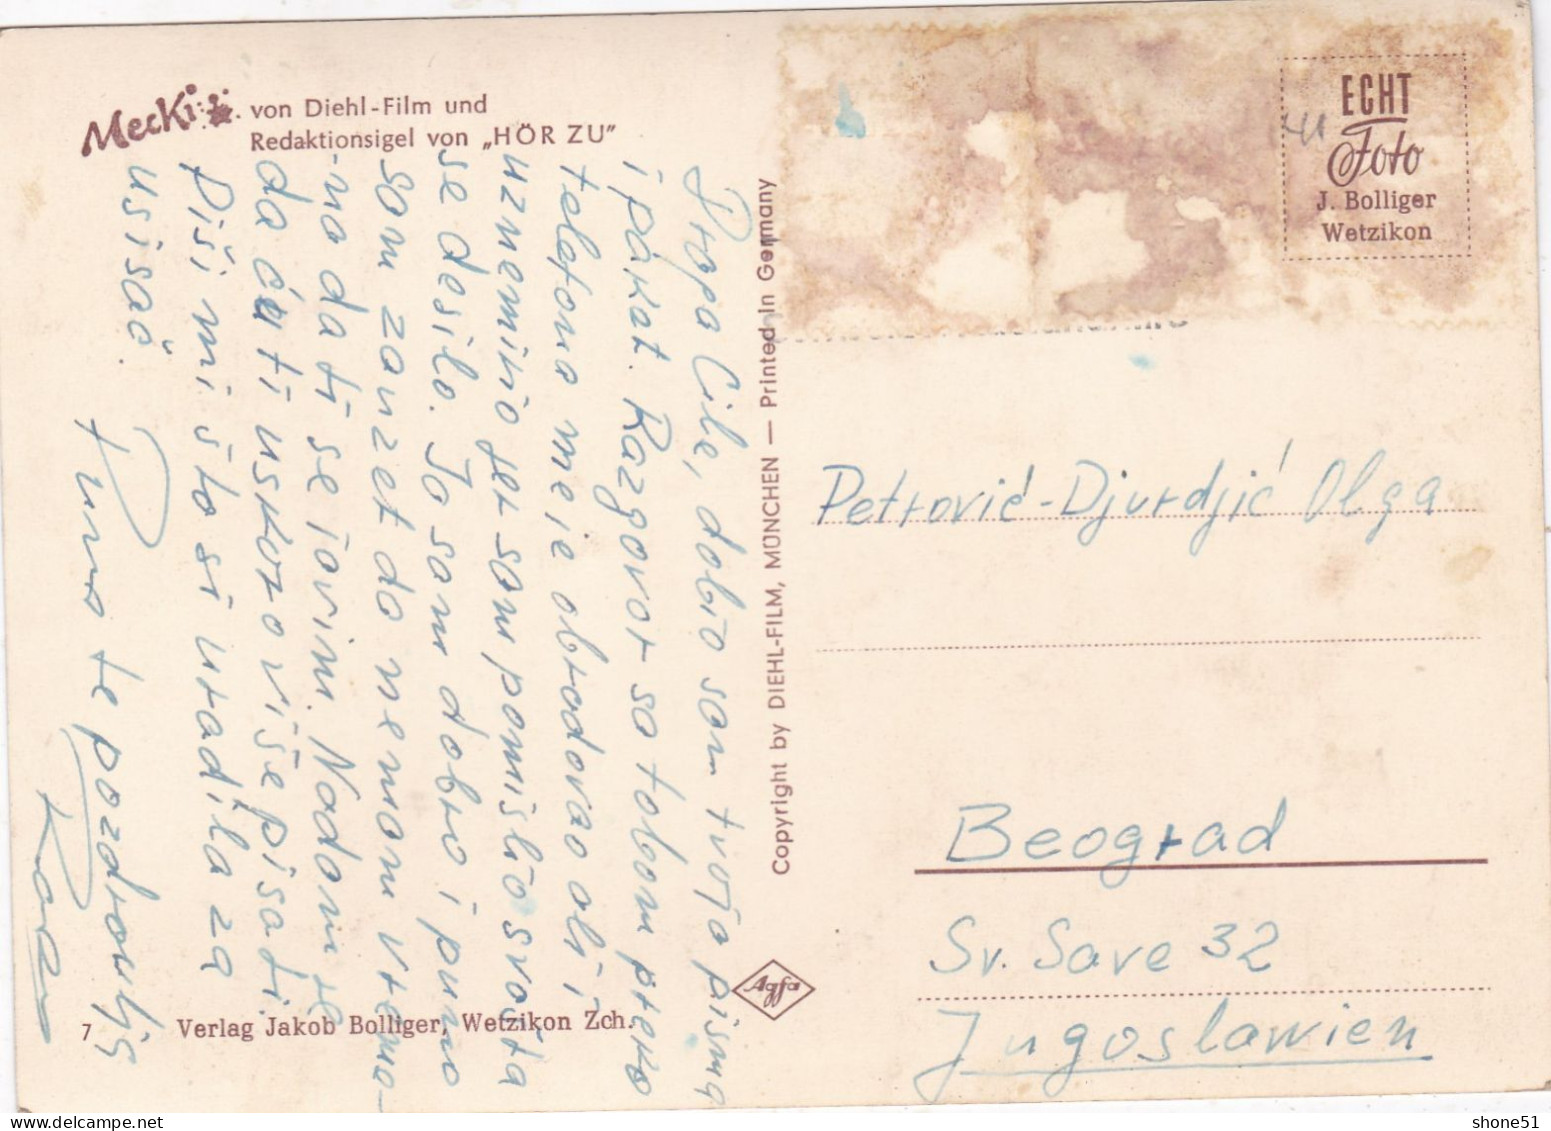 Mecki von Diehl-Film und
Redaktionsigel von „HÖR ZU”
Draga Cile, dobio sam tvoja pisma
i paket. Razgovor sa tobom preko
telefona me je obradovao ali i
uznemirio jer sam pomislio svašta
se desilo. Ja sam dobro i puno
sam zauzet da nemam vreme-
na da ti se javim. Nadam se
da ću ti uskoro više pisati.
Piši mi što si uradila za
usisač.
Puno te pozdravlja
Copyright by DIEHL-FILM, MÜNCHEN — Printed in Germany
Agfa
7 Verlag Jakob Bolliger, Wetzikon Zch.
ECHT
Foto
J. Bolliger
Wetzikon
Petrović-Djurdjić Olga
Beograd
Sv. Save 32
Jugoslawien
delcampe.net
shone51